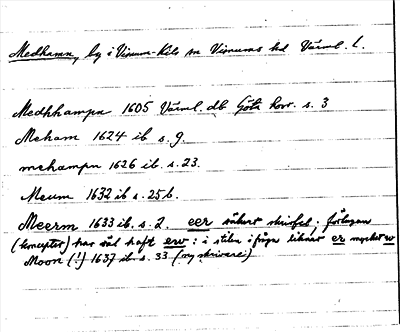 Medhamn, by i Visnums-Kils sn Visnums hd Värml. l.
Medhhampn 1605 Värml. db Göta hovr. s. 3
Meham 1624 ib s. 9.
mehampn 1626 ib. s. 23.
Meum 1632 ib s. 256.
Meerm 1633 ib. s. 2. eer säkert skrivfel; förlagan
(konceptet) har väl haft erw: i stilen i fråga liknar er mycket w
Moon (!) 1637 ib. s. 33 (ny skrivare)